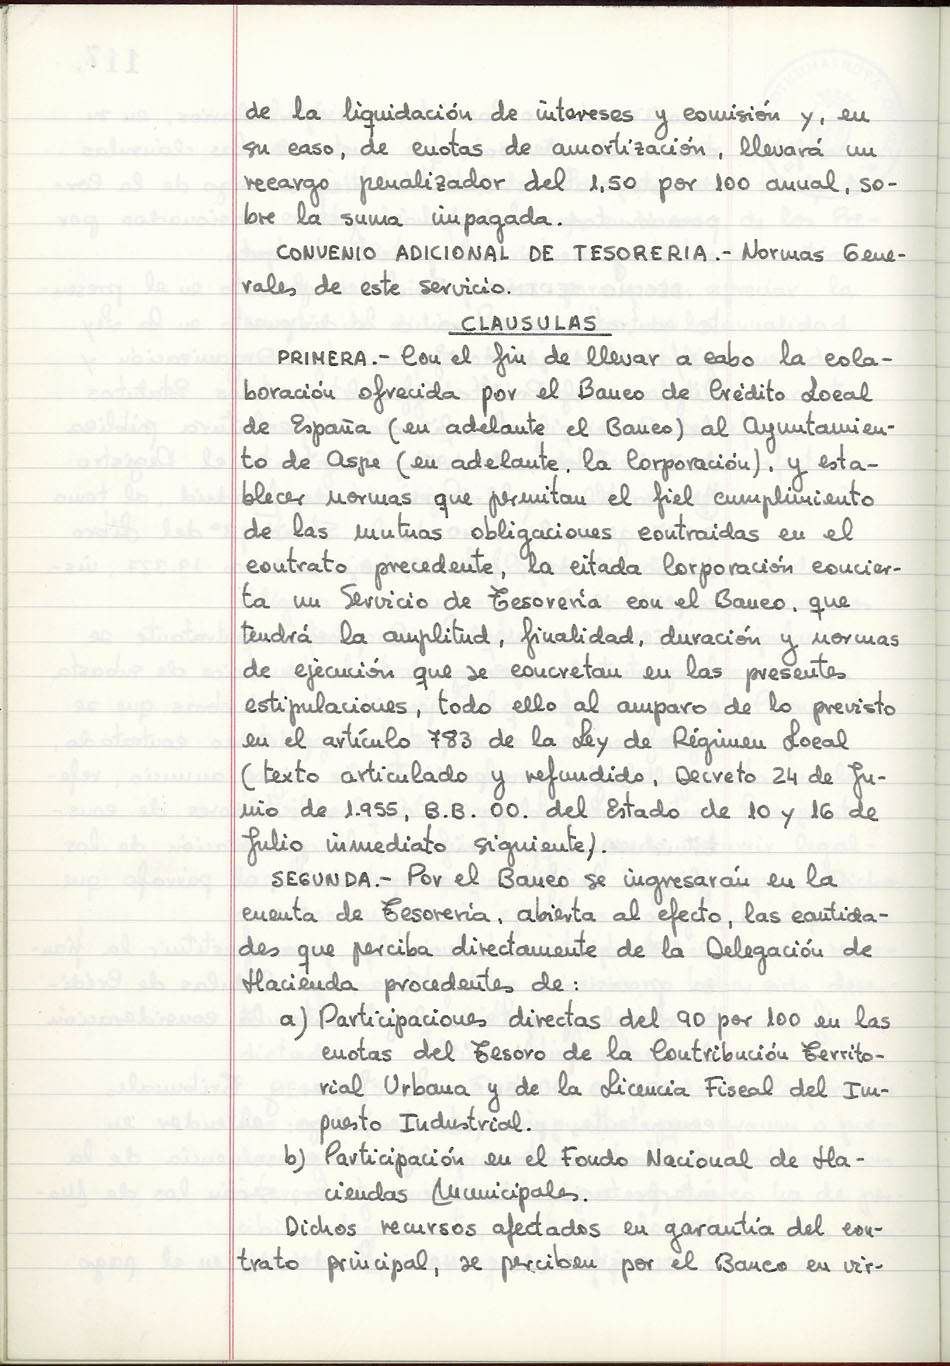 de la liquidación de intereses y comisión y, en
su caso, de cuotas de amortización, llevará un
recargo penalizador del 1,50 por 100 anual, so-
bre la suma impagada.
CONVENIO ADICIONAL DE TESORERIA.- Normas Gene-
rales de este servicio.
CLAUSULAS
PRIMERA.- Con el fin de llevar a cabo la cola-
boración ofrecida por el Banco de Crédito Local
de España (en adelante el Banco) al Ayuntamien-
to de Aspe (en adelante, la Corporación), y esta-
blecer normas que permitan el fiel cumplimiento
de las mutuas obligaciones contraidas en el
contrato precedente, la citada Corporación concier-
ta un Servicio de Tesorería con el Banco, que
tendrá la amplitud, finalidad, duración y normas
de ejecución que se concretan en las presentes
estipulaciones, todo ello al amparo de lo previsto
en el artículo 783 de la Ley de Régimen Local
(texto articulado y refundido, Decreto 24 de Ju-
nio de 1.955, B.B. OO. del Estado de 10 y 16 de
Julio inmediato siguiente).
SEGUNDA.- Por el Banco se ingresarán en la
cuenta de Tesorería, abierta al efecto, las cantida-
des que perciba directamente de la Delegación de
Hacienda procedentes de:
a) Participaciones directas del 90 por 100 en las
cuotas del Tesoro de la Contribución Territo-
rial Urbana y de la Licencia Fiscal del Im-
puesto Industrial.
b) Participación en el Fondo Nacional de Ha-
ciendas Municipales.
Dichos recursos afectados en garantía del con-
trato principal, se perciben por el Banco en vir-